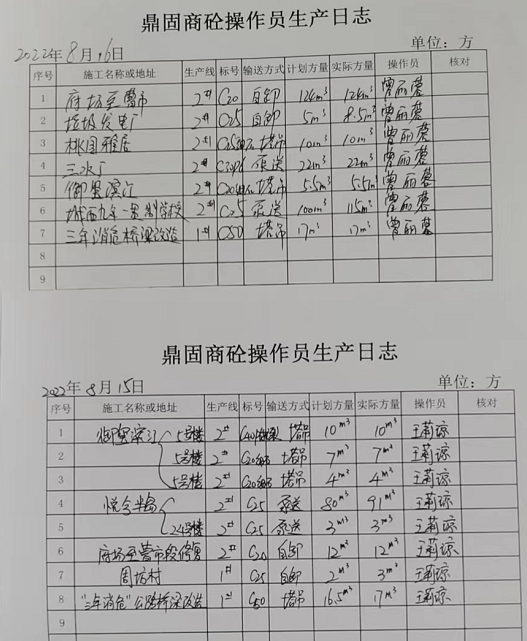 鼎固商砼操作员生产日志
2022年8月16日 单位：方
序号 施工名称或地址 生产线 标号 输送方式 计划方量 实际方量 操作员 核对
1 府场至曹市 2# C20 自卸 124m³ 124m³ 曾丽蓉
2 垃圾发电厂 2# C25 自卸 5m³ 8.5m³ 曾丽蓉
3 桃园雅居 2# C25细石 塔吊 10m³ 10m³ 曾丽蓉
4 三水厂 2# 泵送 22m³ 22m³ 曾丽蓉
5 御玺滨江 2# C20细石 塔吊 5.5m³ 5.5m³ 曾丽蓉
6 城西九年一贯制学校 2# C25 泵送 100m³ 115m³ 曾丽蓉
7 三年消危桥梁改造 1# C50 塔吊 17m³ 17m³ 曾丽蓉
8
9
鼎固商砼操作员生产日志
2022年8月15日 单位：方
序号 施工名称或地址 生产线 标号 输送方式 计划方量 实际方量 操作员 核对
1 御玺滨江 5号楼 2# C40 塔吊 10m³ 10m³ 王莉琼
2 5号楼 2# C20细石 塔吊 7m³ 7m³ 王莉琼
3 5号楼 2# C20细石 塔吊 4m³ 4m³ 王莉琼
4 悦今半岛 2# C25 泵送 80m³ 91m³ 王莉琼
5 24号楼 2# C25 泵送 3m³ 3m³ 王莉琼
6 府场至曹市段修复 2# C20 自卸 12m³ 12m³ 王莉琼
7 周坊村 1# C25 自卸 2m³ 3m³ 王莉琼
8 "三年消危"公路桥梁改造 1# C50 塔吊 16.5m³ 17m³ 王莉琼
9